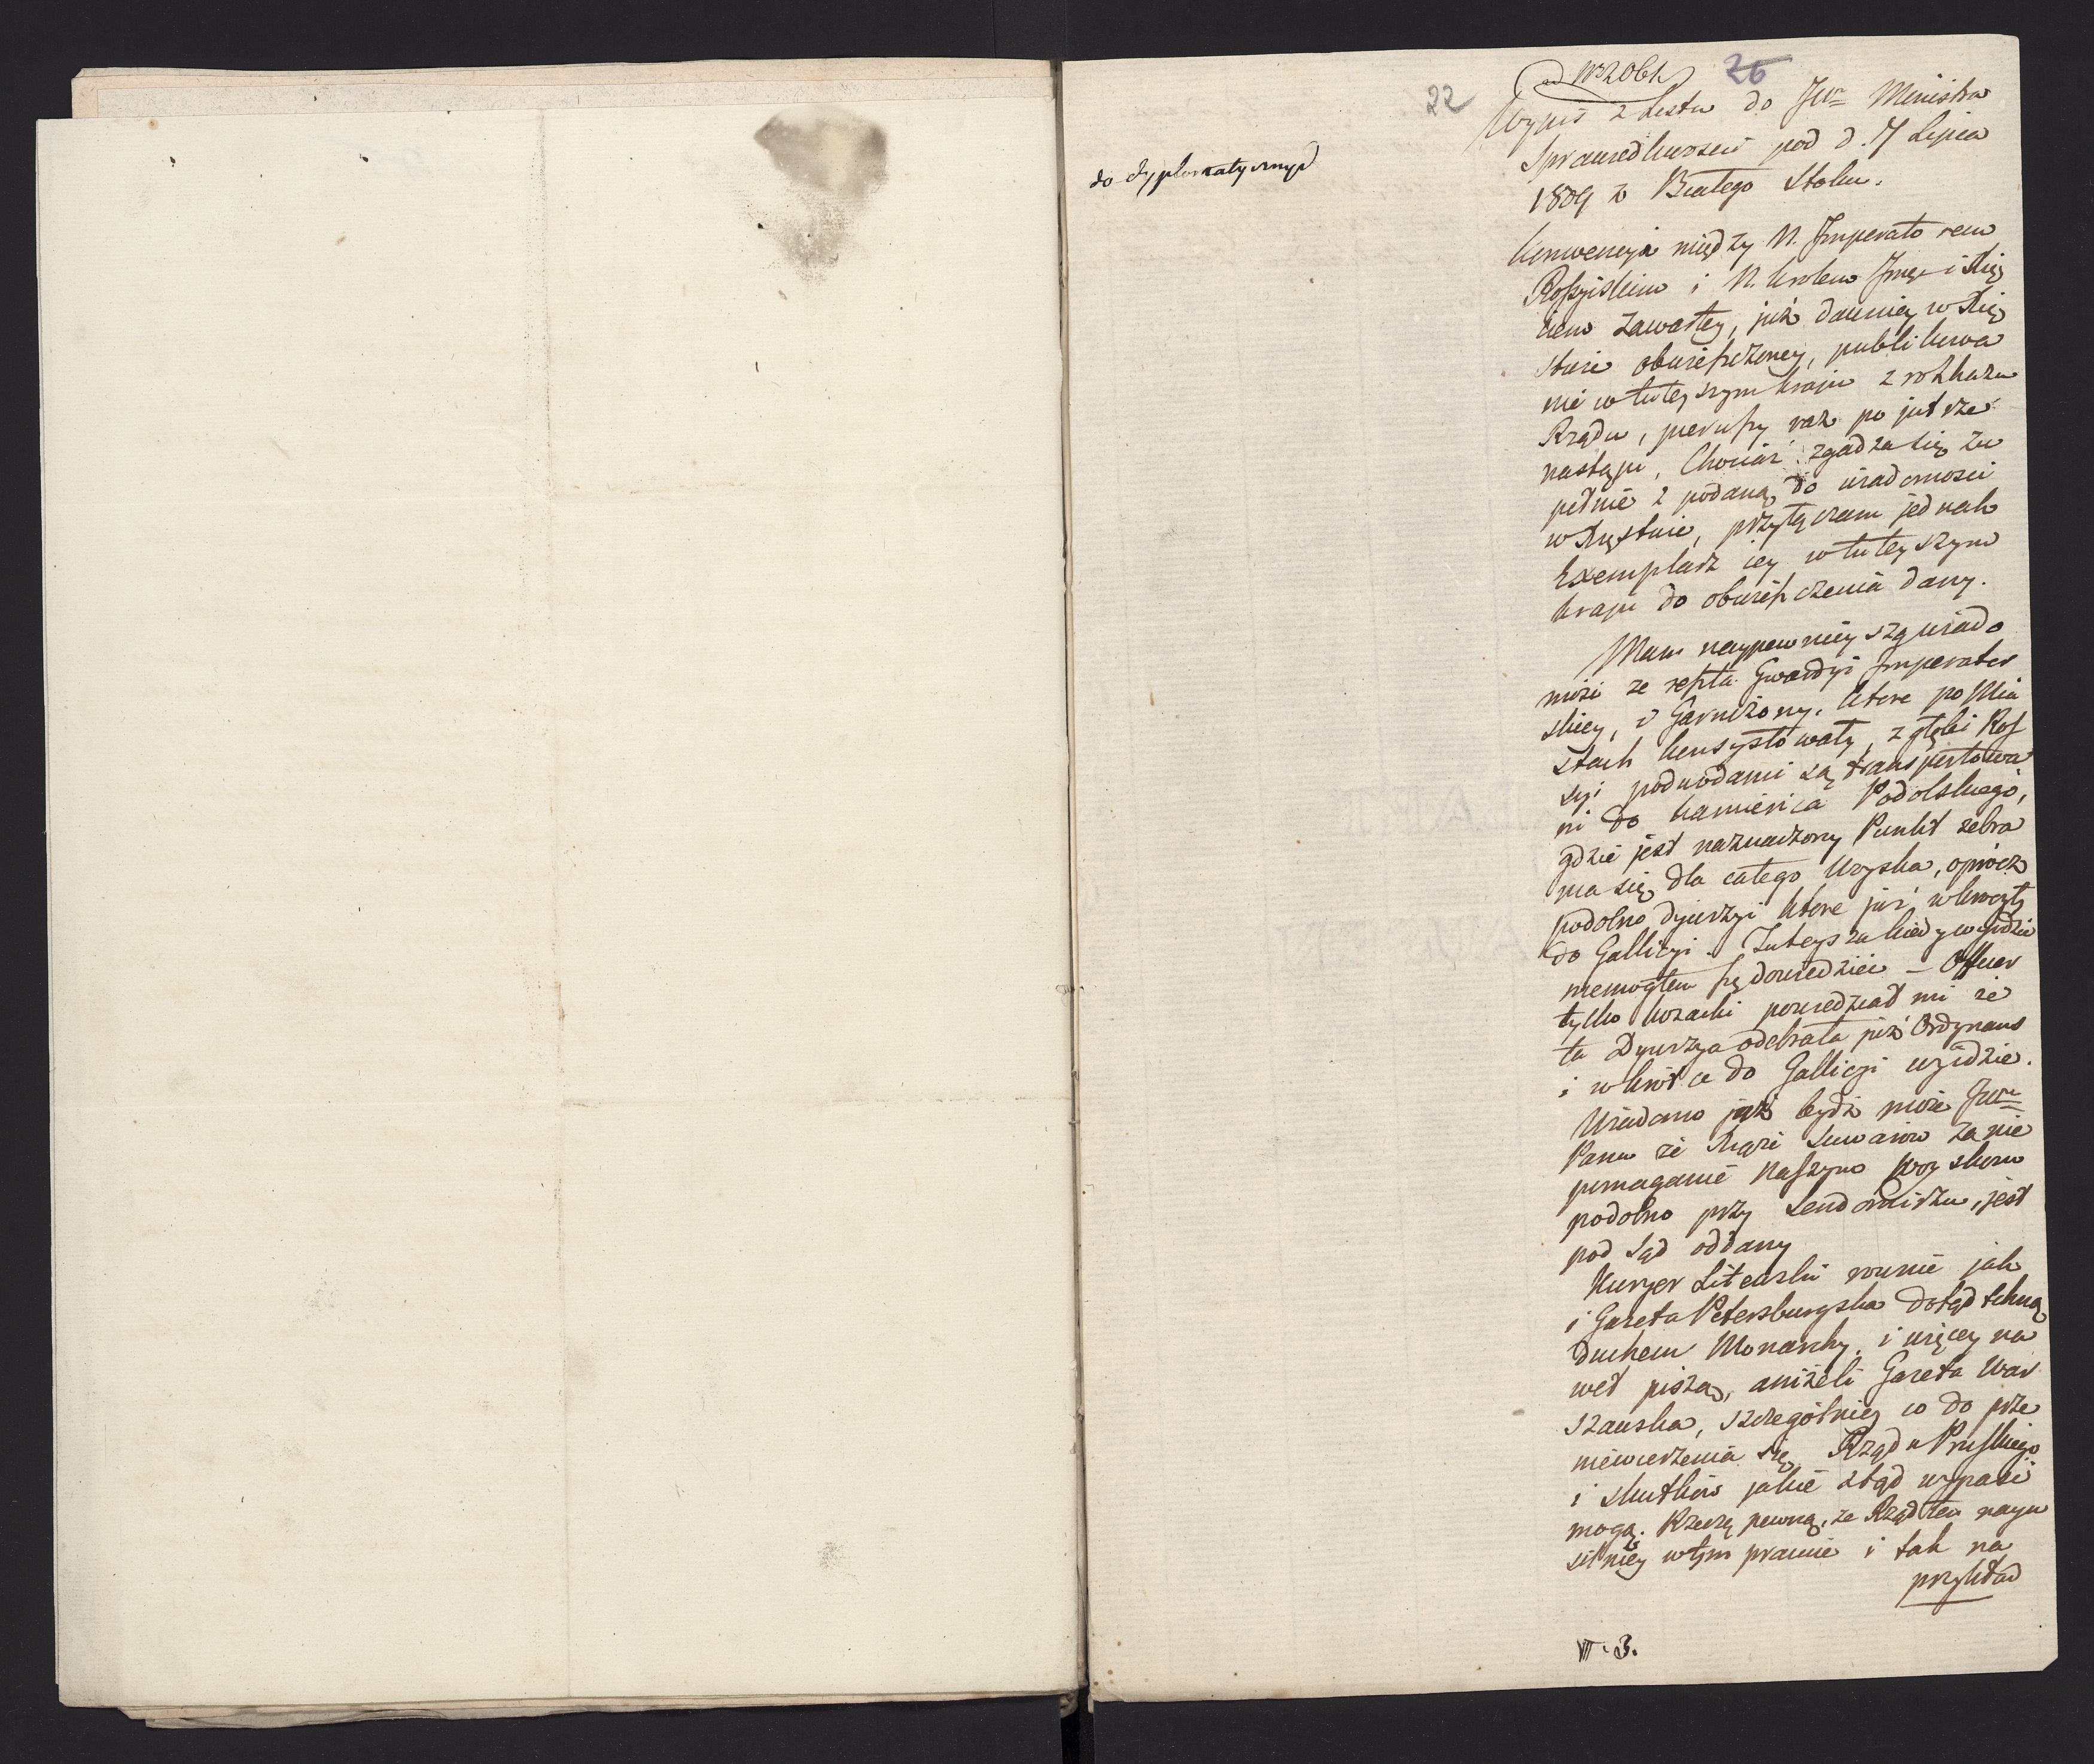 ad N 2061
26
22
do dyplomatycznych
Wypis z Listu do JW Ministra
Sprawiedliwosci pod d. 7 Lipca
1809 z Białego Stoku.
Konwencyia między N. Imperatorem
Rossyiskim i N. Krolem
zawartey, już dawniey w
obwieszczoney, publikowa
nie w tuteyszym kraju z rozkazu
Rządu, pierwszy raz po jutrze
nastąpi, Chociaż zgadza się zu
pełnie z podaną do wiadomosci
w Xięstwie, przyłączam jednak
Exemplarz iey w tuteyszym
kraju do obwieszczenia dany.
Mam naypewnieyszą wiado
mość ze reszta Gwardyi Imperator
skiey, i Garnizony, ktore po Mia
stach konsystowały, z głębi Ros
syi podwodami są transportowa
ni do Kamieńca Podolskiego,
gdzie jest naznaczony Punkt zebra
nia się dla całego Woyska, oprócz
podobno dywizyi ktore już wkroczyły
do Gallicyi. Tuteysza kiedy wyidzie
niemogłem się dowiedzieć – Officer
tylko kozacki powiedział mi że
ta Dywizya odebrała już Ordynans
i wkrót ce do Gallicyi wyidzie.
Wiadomo już bydź może JW
Panu że Xiąże Suwarów za nie
pomaganie Naszym Woyskom
podobno przy Sendomirzu, jest
pod Sąd oddany
Kuryer Litewski rownie jak
i Gazeta Petersburgska dotąd tchną
duchem Monarchy, i więcey na
wet piszą, aniżeli Gazeta War
szawska, szczególniey co do prze
niewierzenia się Rządu Pruskiego
i skutków jakie ztąd wypaść
mogą. Rzeczą pewną, że Rząd ten nayu
silniey w tym pracuie i tak na
przykład
VII. 3.